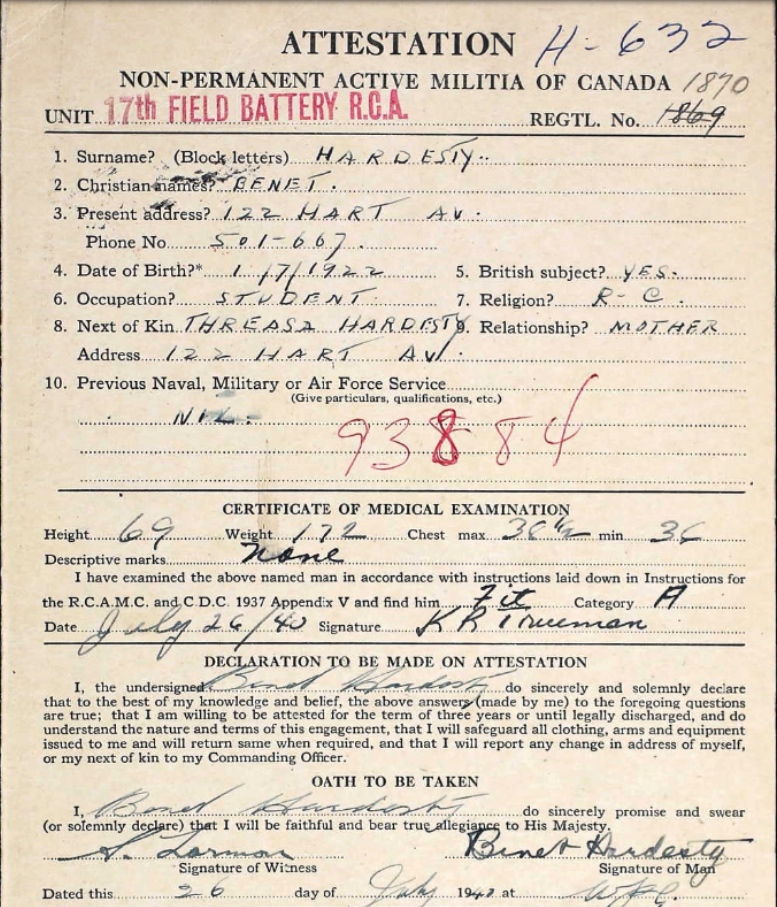 ATTESTATION H-632
NON-PERMANENT ACTIVE MILITIA OF CANADA 1870
UNIT 17th FIELD BATTERY R.C.A. REGTL. No. 1869
1. Surname? (Block letters) HARDESTY.
2. Christian names? BENET.
3. Present address? 122 HART AV.
Phone No. 501-667.
4. Date of Birth?* 1/7/1922 5. British subject? YES.
6. Occupation? STUDENT 7. Religion? R-C.
8. Next of Kin THREASA HARDESTY 9. Relationship? MOTHER
Address 122 HART AV.
10. Previous Naval, Military or Air Force Service
(Give particulars, qualifications, etc.)
NIL.
93884
CERTIFICATE OF MEDICAL EXAMINATION
Height 69 Weight 172 Chest max. 38½ min 36
Descriptive marks none
I have examined the above named man in accordance with instructions laid down in Instructions for
the R.C.A.M.C. and C.D.C. 1937 Appendix V and find him Fit Category A
Date July 26/40 Signature K R Trueman
DECLARATION TO BE MADE ON ATTESTATION
I, the undersigned Benet Hardesty do sincerely and solemnly declare
that to the best of my knowledge and belief, the above answers (made by me) to the foregoing questions
are true; that I am willing to be attested for the term of three years or until legally discharged, and do
understand the nature and terms of this engagement, that I will safeguard all clothing, arms and equipment
issued to me and will return same when required, and that I will report any change in address of myself,
or my next of kin to my Commanding Officer.
OATH TO BE TAKEN
I, Benet Hardesty do sincerely promise and swear
(or solemnly declare) that I will be faithful and bear true allegiance to His Majesty.
Benet Hardesty
Signature of Witness Signature of Man
Dated this 26 day of July 1940 at